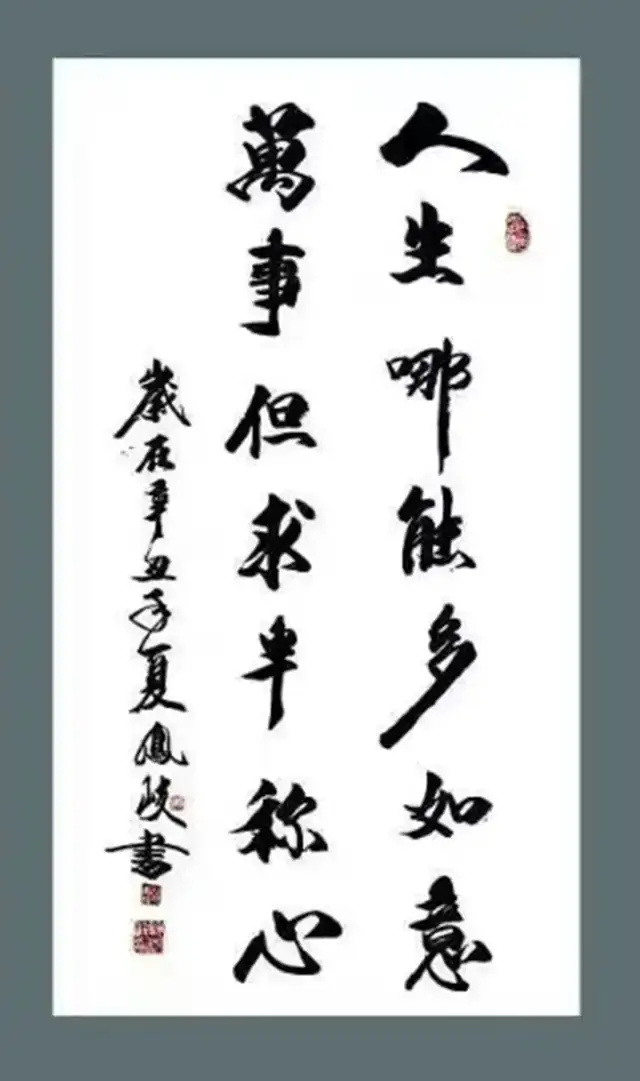 人生哪能多如意
萬事但求半称心
歲在辛丑年夏鳳歧書